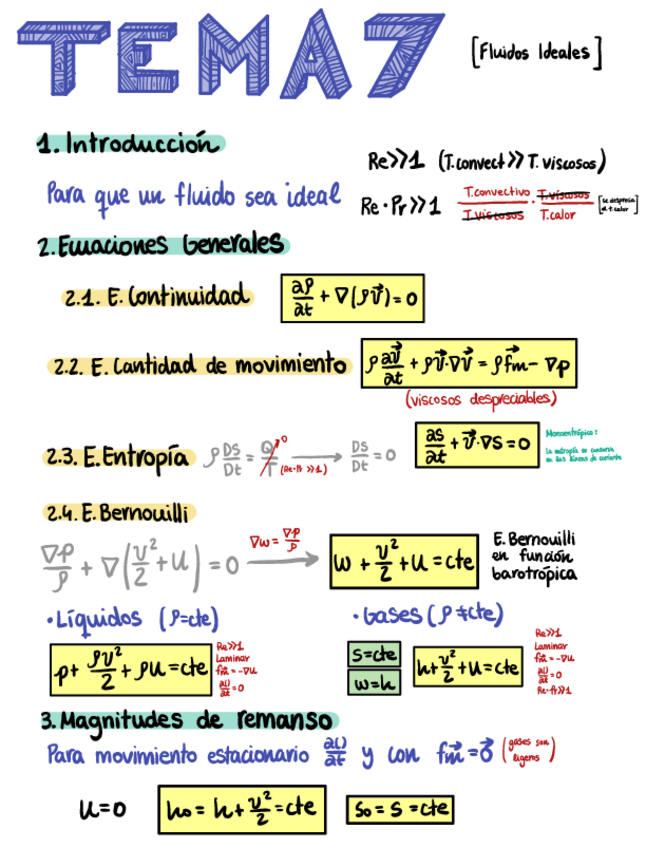 TEMA 7 [Fluidos Ideales]
1. Introducción
Re>>1 (T.convect >> T. viscosos)
Para que un fluido sea ideal Re · Pr >> 1 T.convectivo/T.viscosos · T.viscosos/T.calor [se desprecia el t.calor]
2. Ecuaciones Generales
2.1. E. Continuidad ∂ρ/∂t + ∇(ρv⃗) = 0
2.2. E. Cantidad de movimiento ρ ∂v⃗/∂t + ρv⃗·∇v⃗ = ρf⃗m - ∇p
(viscosos despreciables)
2.3. E. Entropía ρ DS/Dt = Q/T → 0 (Re·Pr >>1) → DS/Dt = 0 ∂s/∂t + v⃗·∇S = 0
Monoentrópico:
La entropía se conserva
en las líneas de corriente
2.4. E. Bernouilli
∇P/ρ + ∇(v²/2 + U) = 0 ∇w = ∇P/ρ → w + v²/2 + U = cte
E. Bernouilli
en función
barotrópica
· Líquidos (ρ=cte)
p + ρv²/2 + ρU = cte
Re>>1
Laminar
f⃗m = -∇U
∂()/∂t = 0
· Gases (ρ ≠ cte)
s = cte
w = h
h + v²/2 + U = cte
Re>>1
Laminar
f⃗m = -∇U
∂()/∂t = 0
Re·Pr>>1
3. Magnitudes de remanso
Para movimiento estacionario ∂()/∂t y con f⃗m = 0⃗ (gases son ligeros)
U = 0 h₀ = h + v²/2 = cte s₀ = s = cte